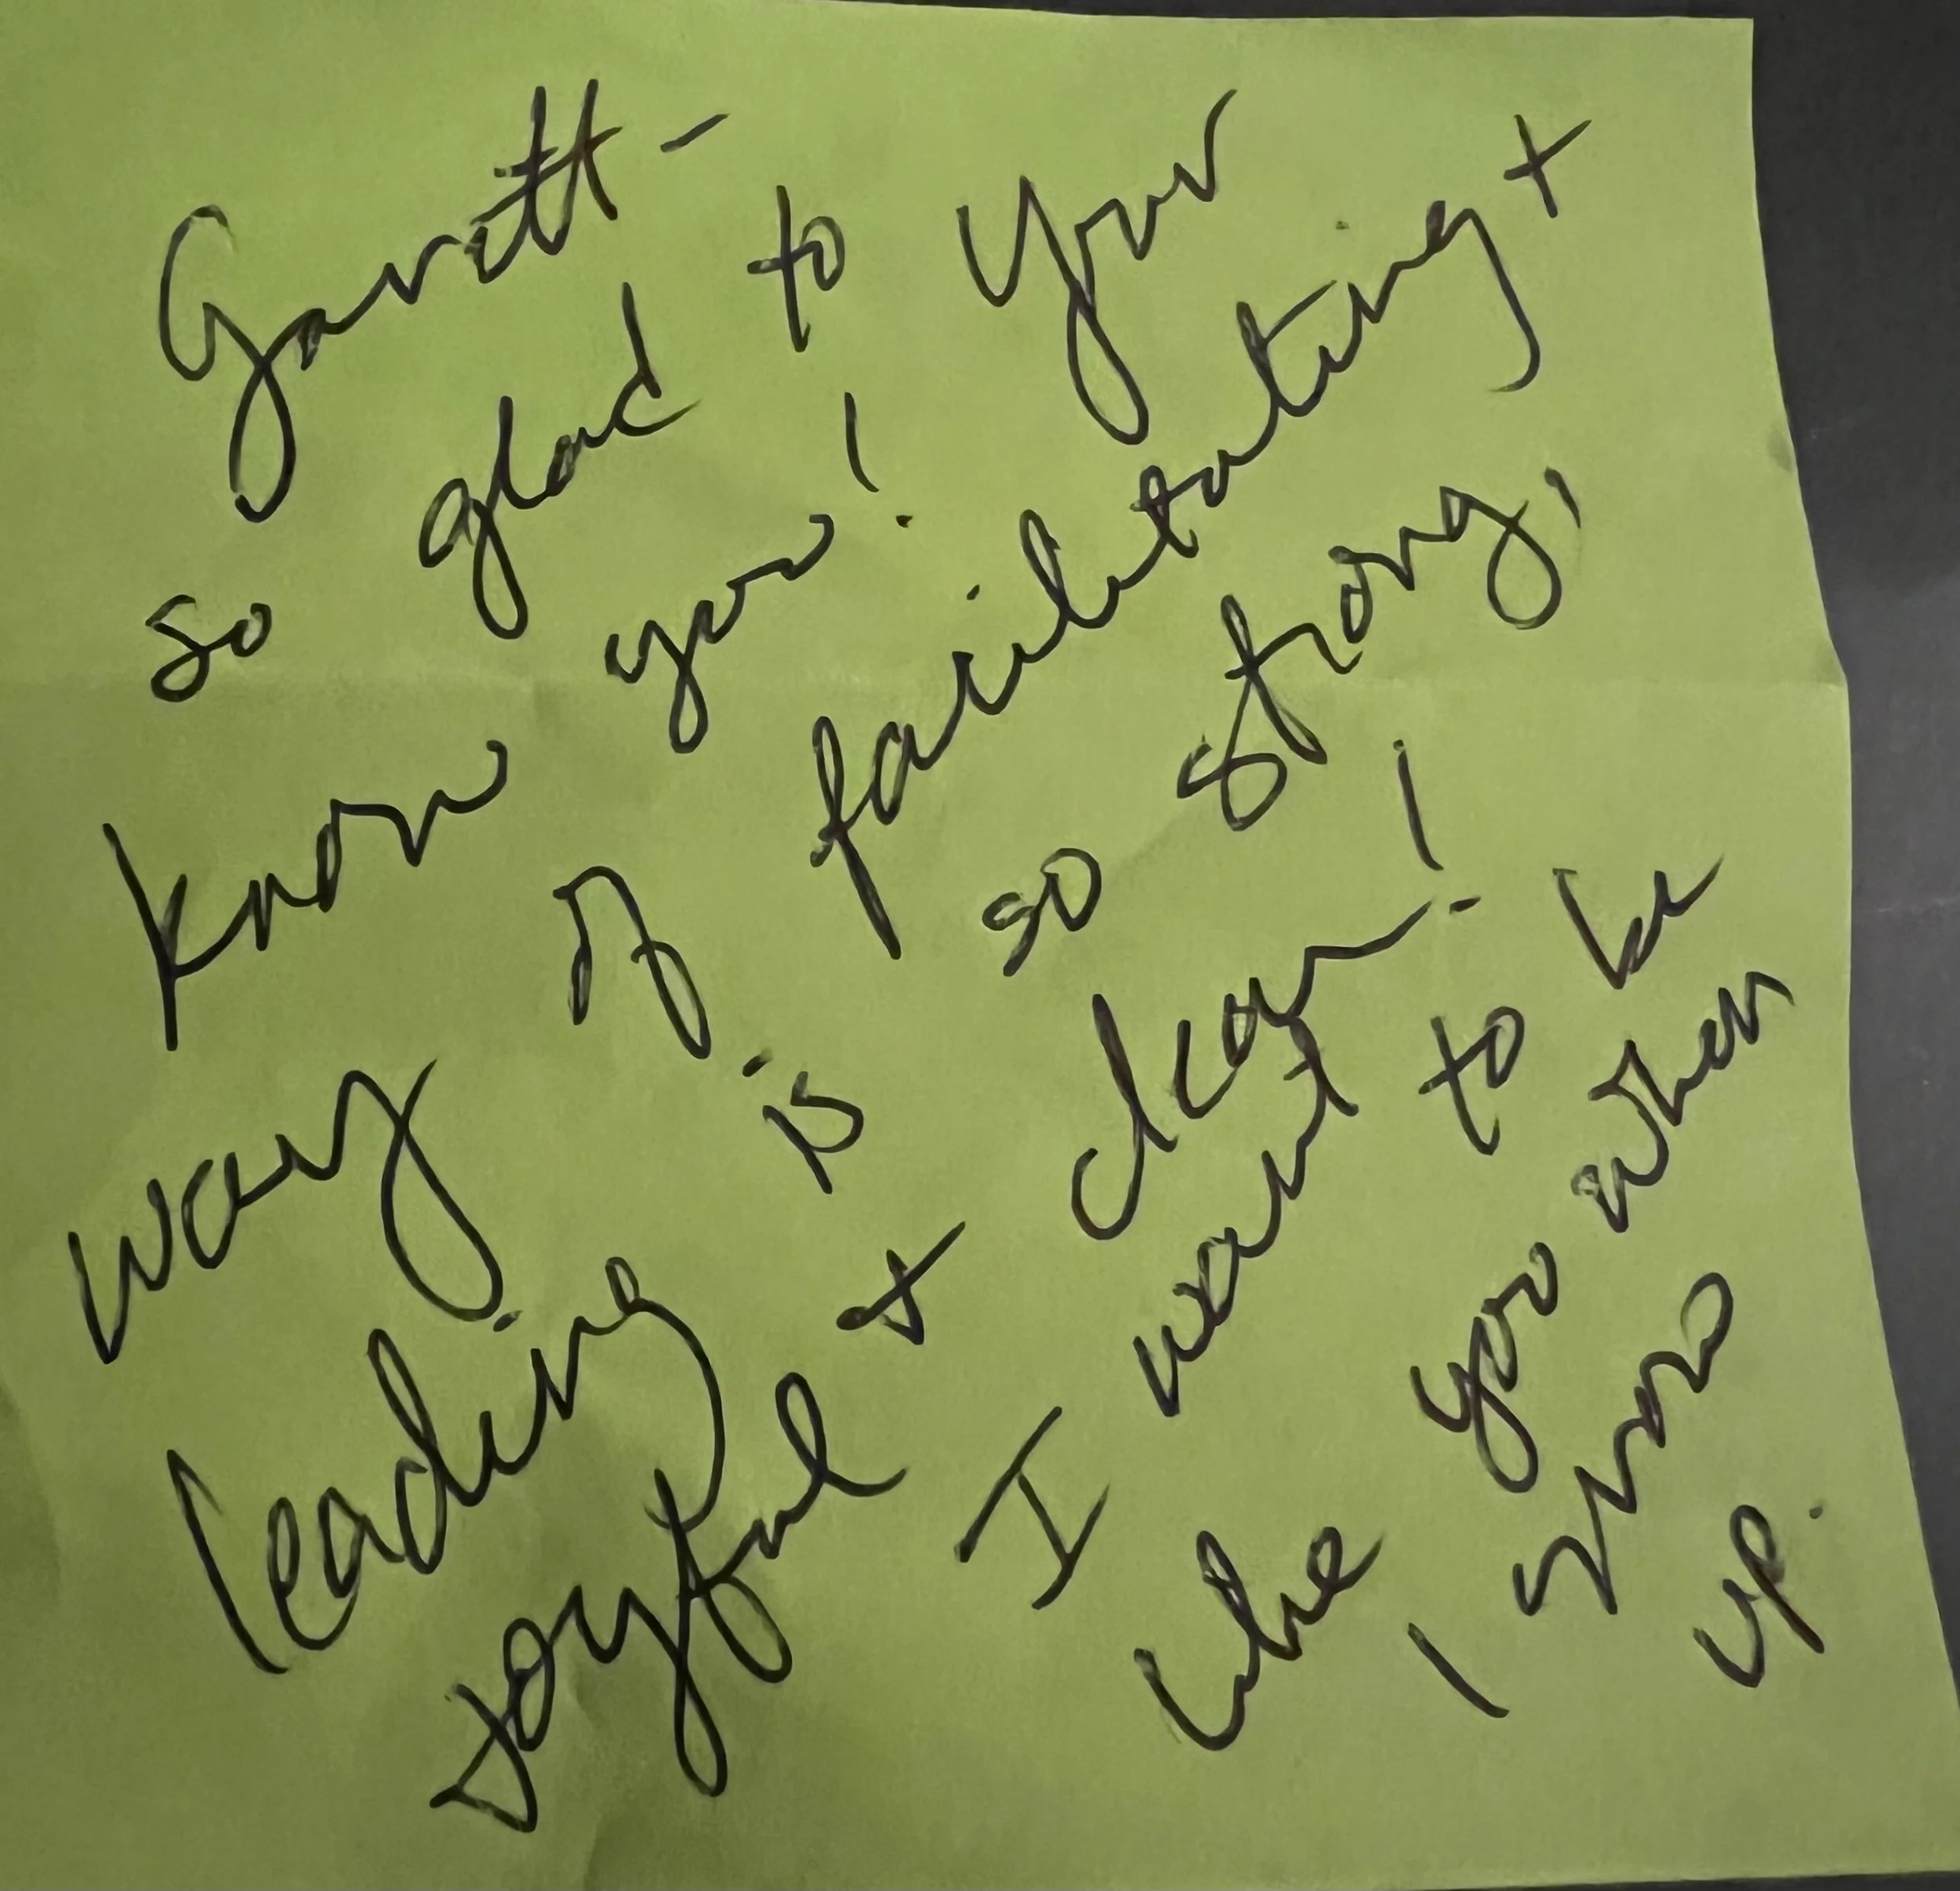 Garrett -
so glad to
know you! Your
way of facilitating +
leading is so strong,
joyful + clear!
I want to be
like you when
I grow
up.